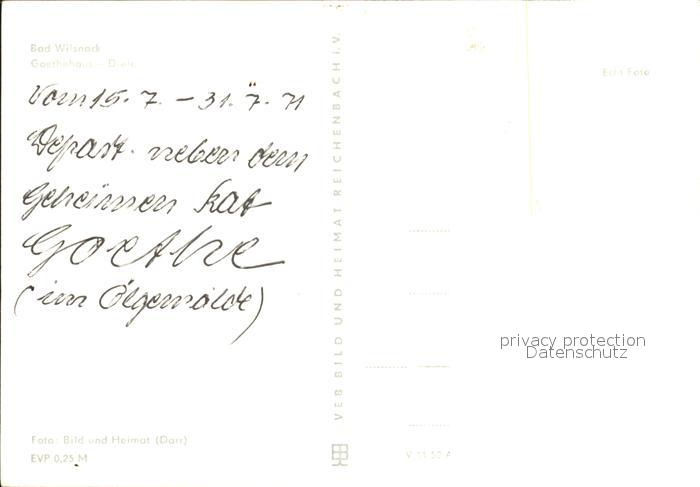 Bad Wilsnack
Goethehaus - Diele
Vom 15. 7. – 31. 7. 71
Depast. neben dem
Geheimen Rat
Goethe
(im Ölgemälde)
Foto: Bild und Heimat (Darr)
EVP 0,25 M
VEB BILD UND HEIMAT REICHENBACH i. V.
Echt Foto
V 11 50 A
privacy protection
Datenschutz